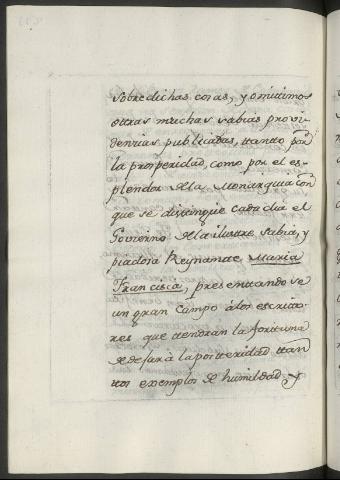 sobre dichas cosas, y omitimos
otras muchas sabias provi-
dencias publicadas, tanto por
la prosperidad, como por el es-
plendor de la Monarquia con
que se distingue cada dia el
Govierno de la ilustre, sabia, y
piadosa Reynante Maria
Francisca, presentando se
un gran campo à los escrito-
res que tendran la fortuna
de dejar à la posteridad tan
tos exemplos de humildad, y